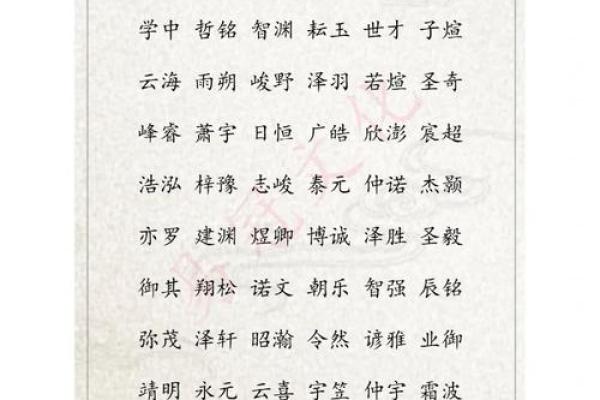 学中 哲铭 智渊 耘玉 世才 子煊
云海 雨朔 峻野 泽羽 若煊 圣奇
峰睿 萧宇 日恒 广皓 欣澎 宸超
浩泓 梓豫 志峻 泰元 仲诺 杰颢
亦罗 建渊 煜卿 博诚 泽胜 圣毅
御其 翔松 诺文 朝乐 智强 辰铭
弥茂 泽轩 昭瀚 令然 谚雅 业御
靖明 永元 云喜 宇笠 仲宇 霜波